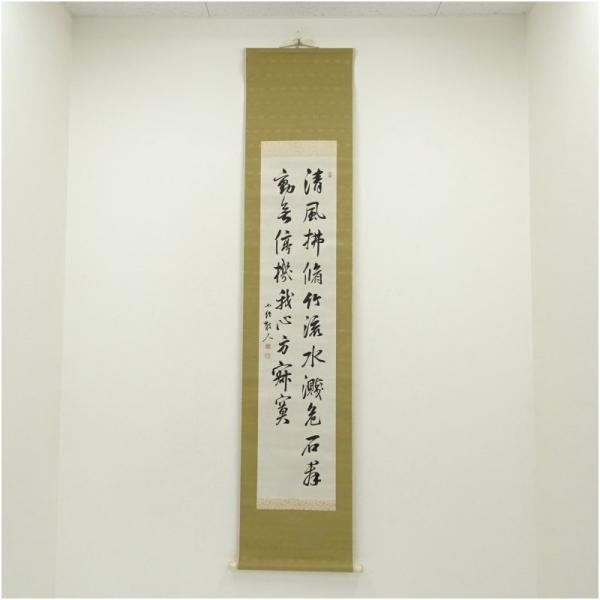 清風拂脩竹流水濺危石群
動無停機我心方寂寞
散人